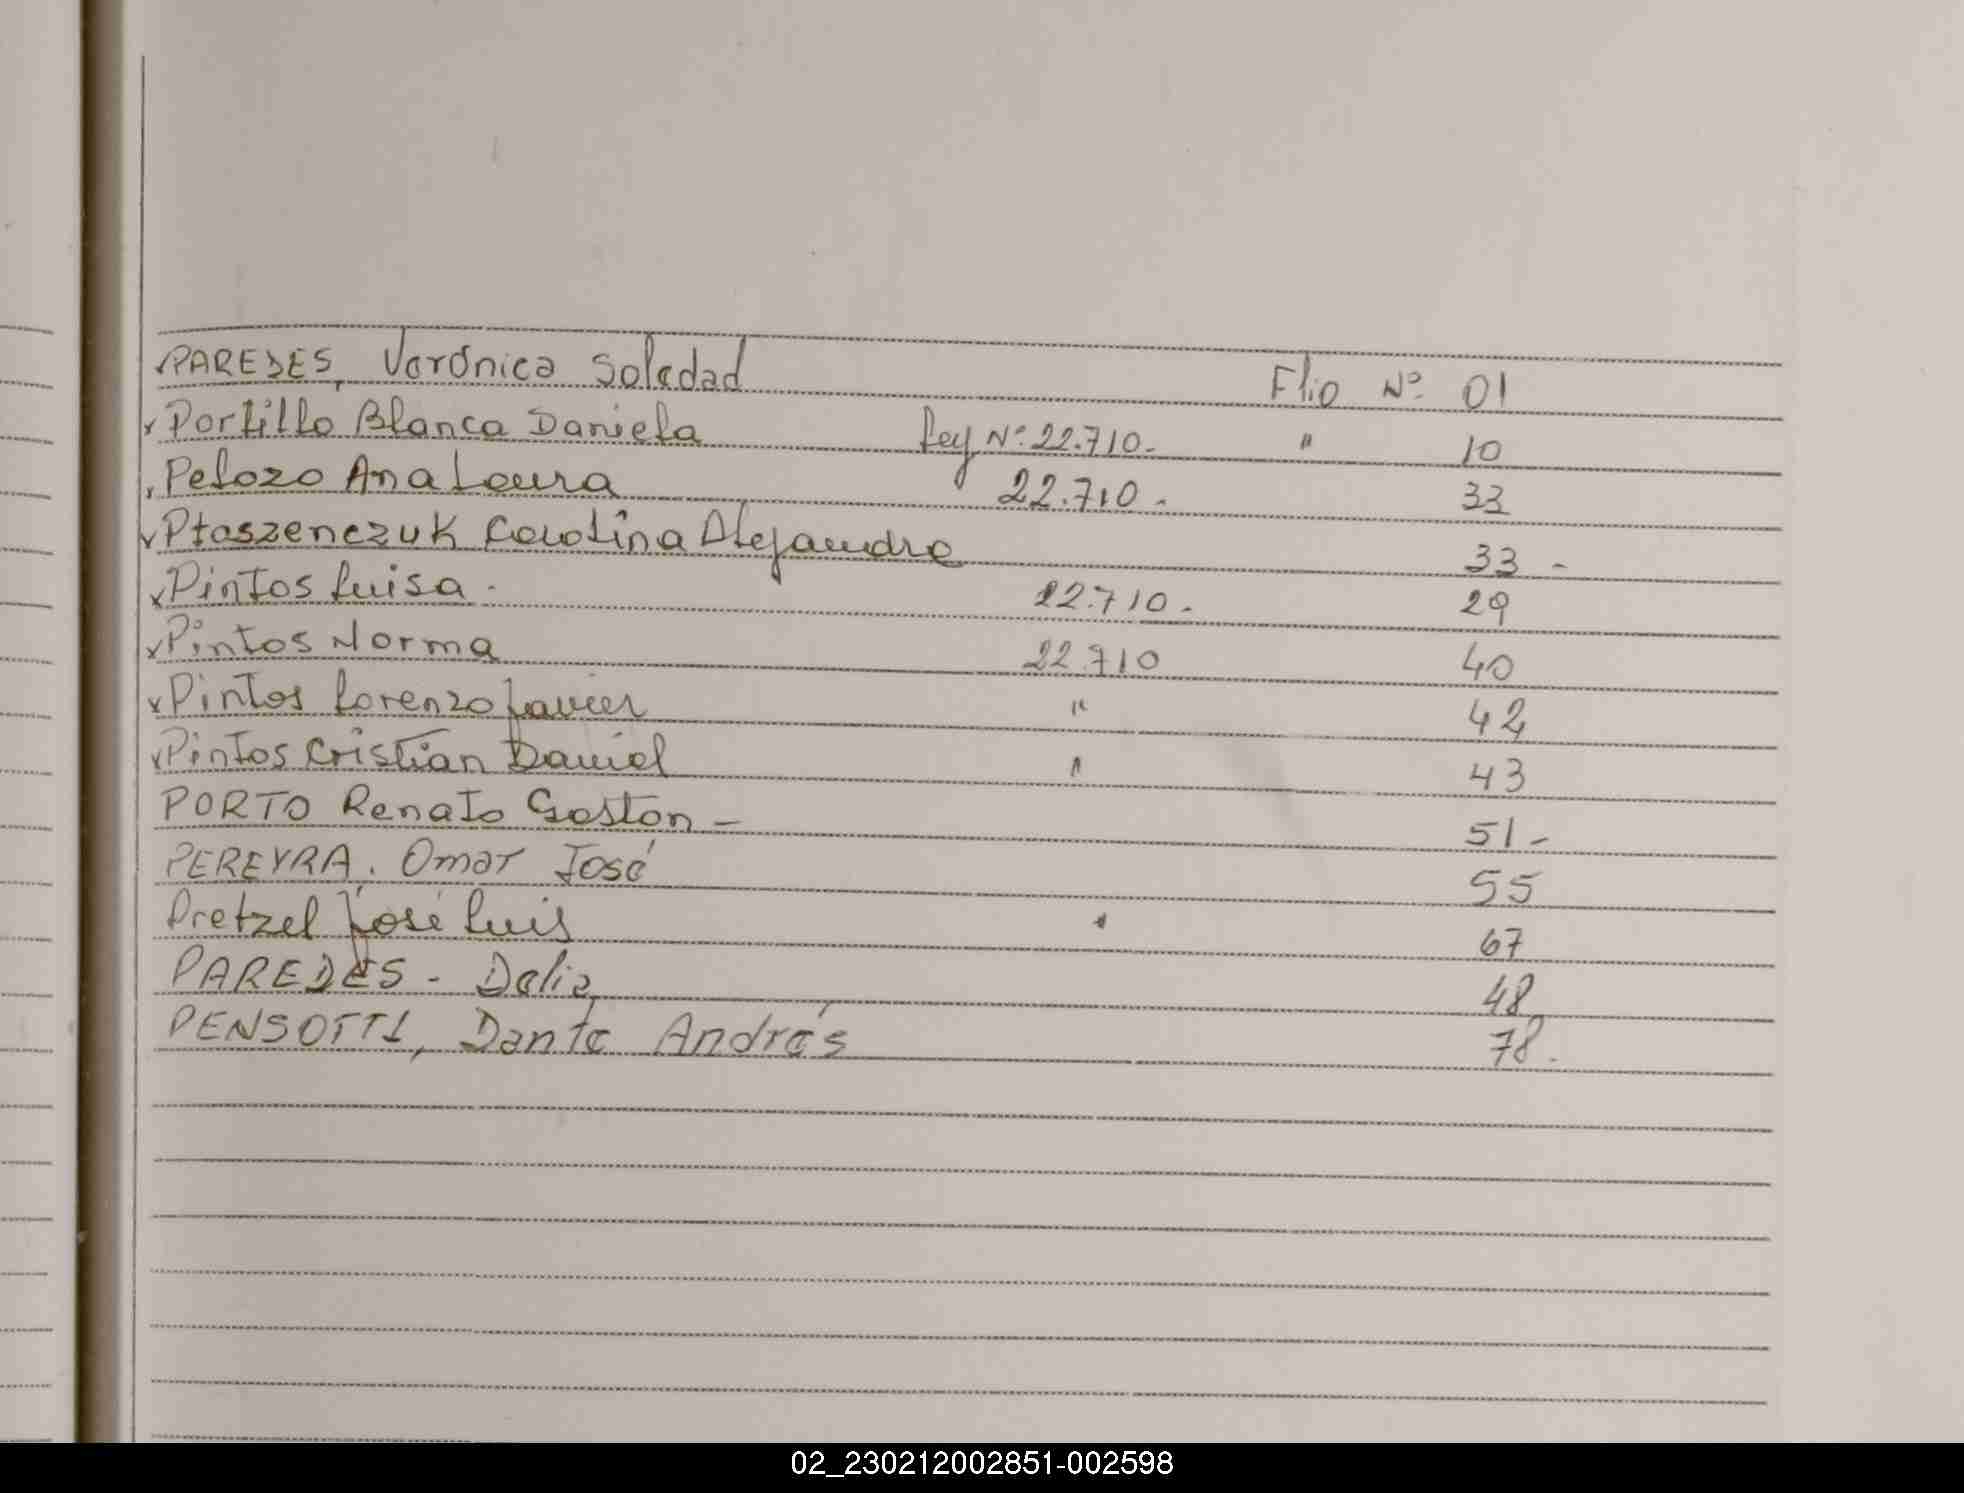 PAREDES, Verónica Soledad Flio Nº 01
Portillo Blanca Daniela Ley Nº 22.710.- " 10
Pelozo Ana Laura 22.710.- 33
Ptaszenczuk Carolina Alejandra 33 -
Pintos Luisa. 22.710.- 29
Pintos Norma 22.710 40
Pintos Lorenzo Javier " 42
Pintos Cristian Daniel " 43
PORTO Renato Gaston - 51 -
PEREYRA. Omar José 55
Pretzel José Luis " 67
PAREDES - Delia 48
PENSOTTI, Dante Andrés 78.
02_230212002851-002598